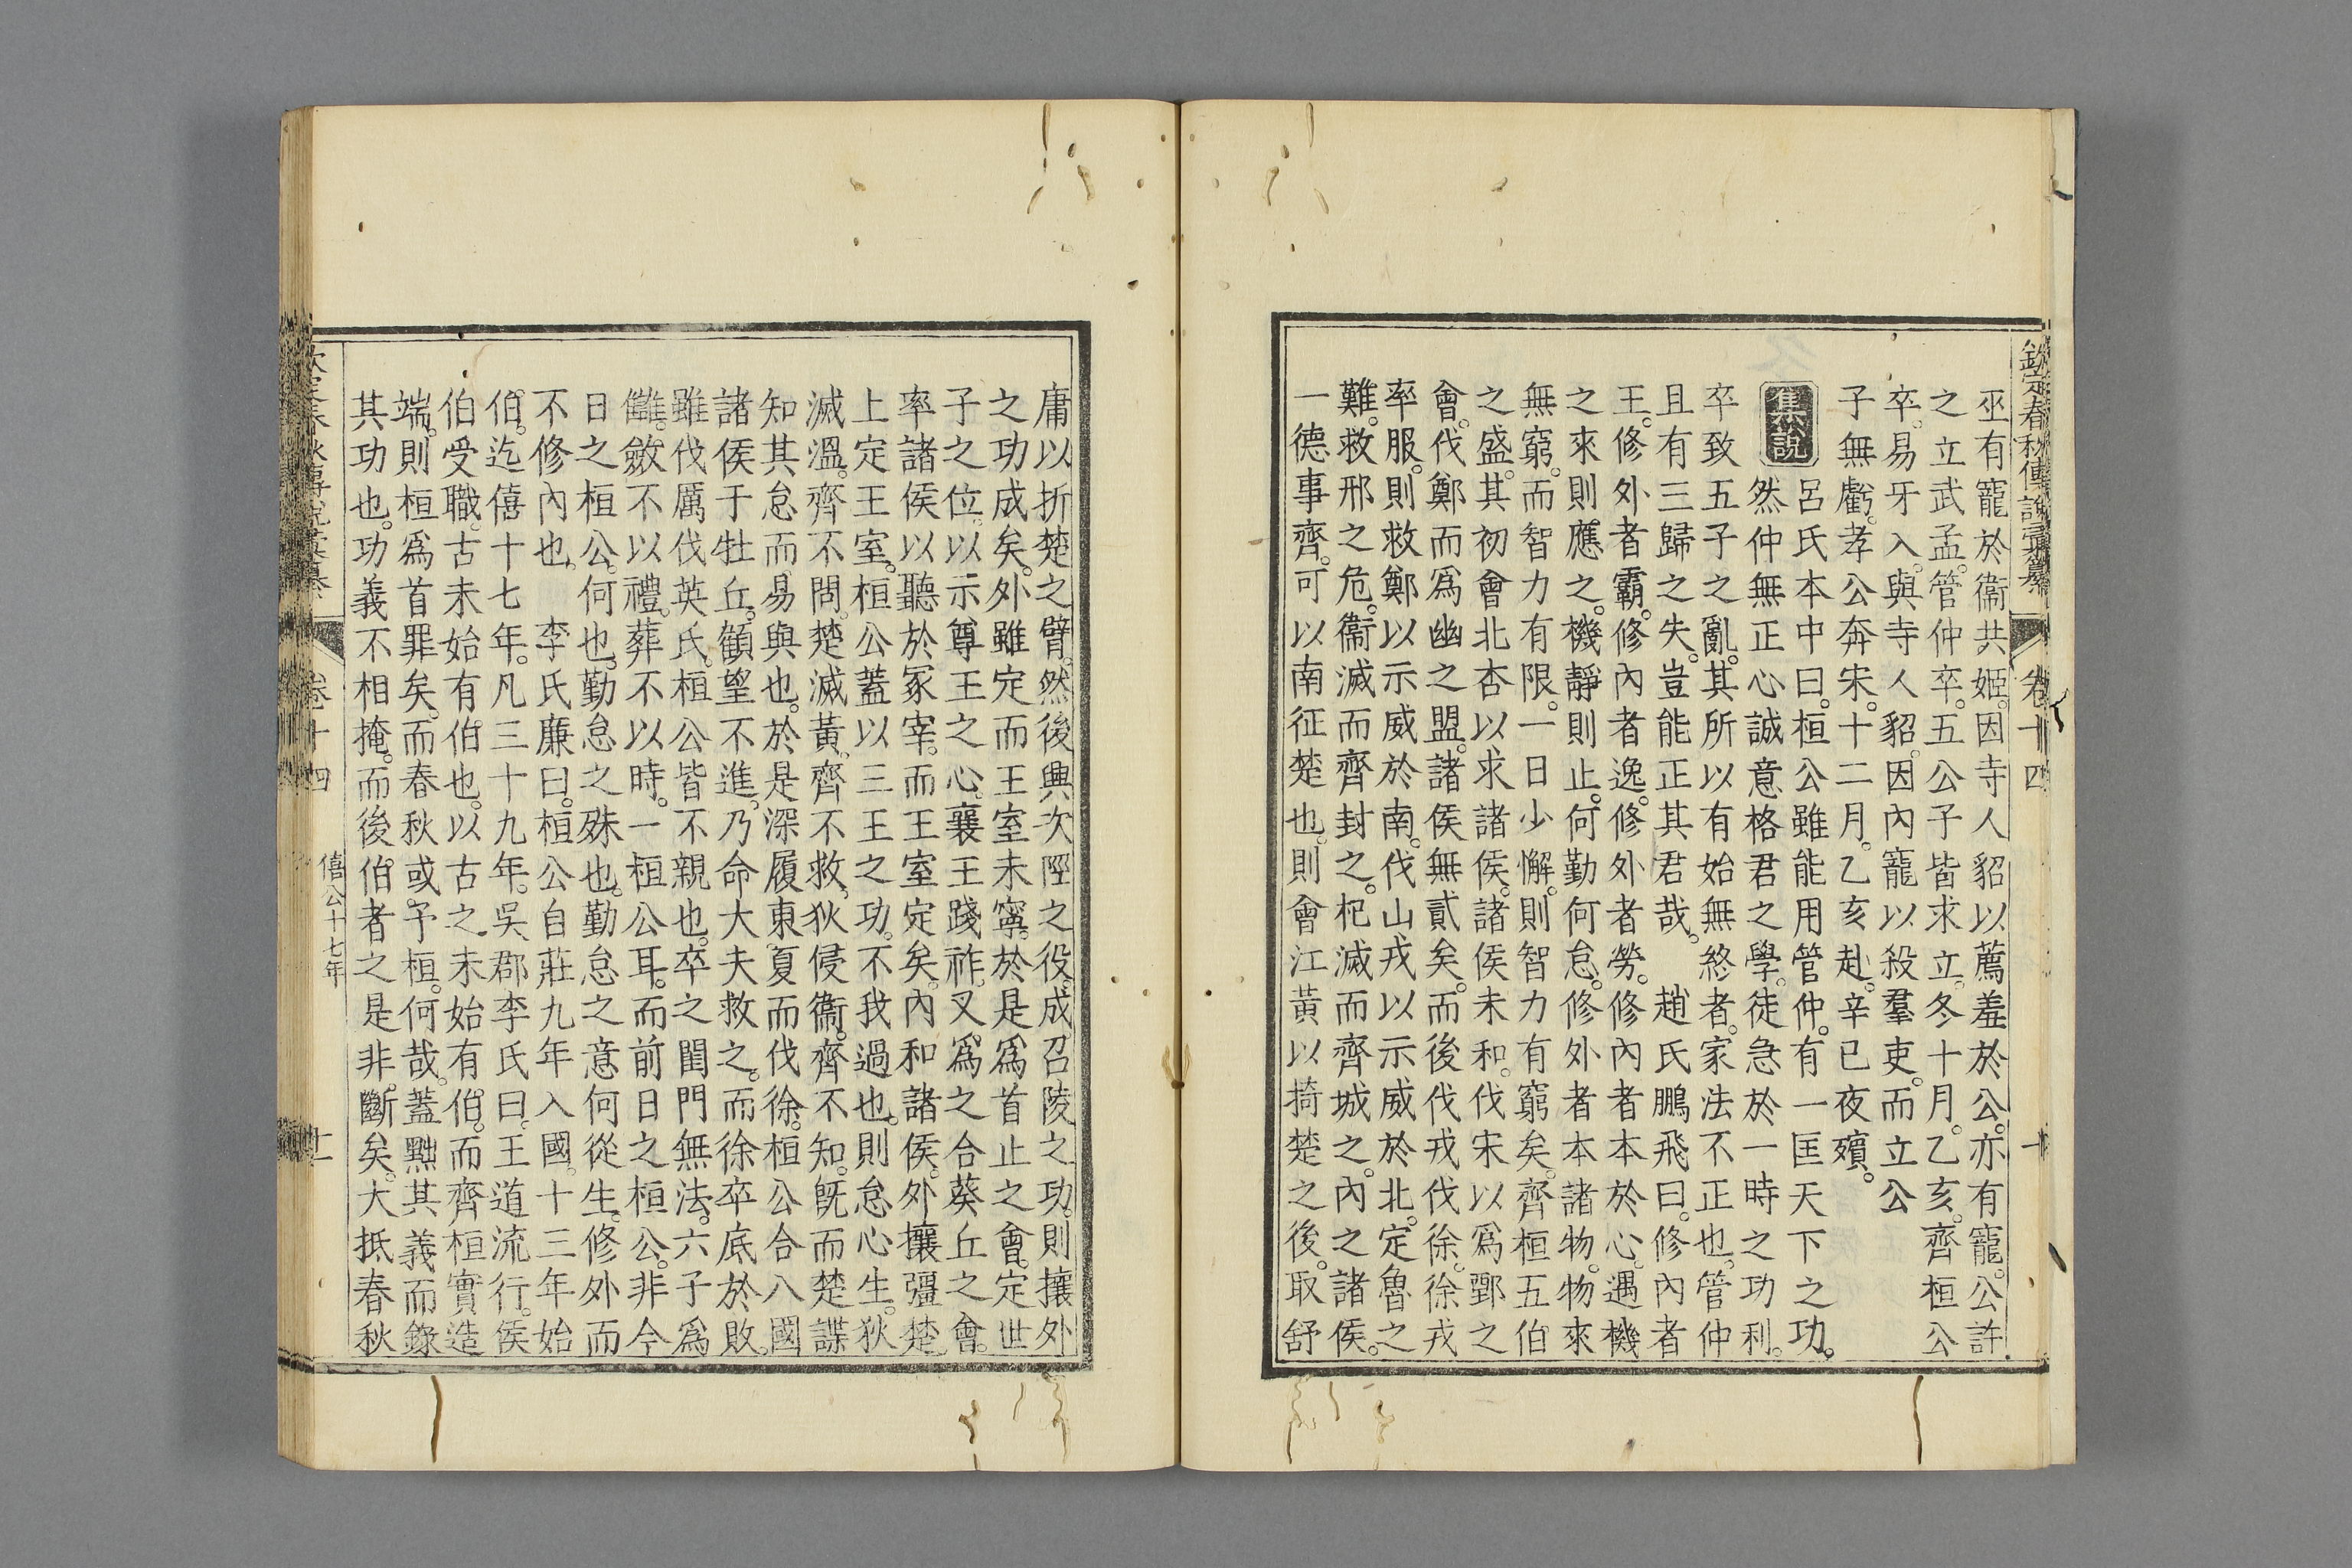 欽定春秋傳說彙纂 卷十四 十
巫有寵於衞共姬。因寺人貂以薦羞於公。亦有寵。公許
之立武孟。管仲卒。五公子皆求立。冬十月。乙亥。齊桓公
卒。易牙入。與寺人貂。因內寵以殺羣吏。而立公
子無虧。孝公奔宋。十二月。乙亥赴。辛巳夜殯。
集說 呂氏本中曰。桓公雖能用管仲。有一匡天下之功。
然仲無正心誠意格君之學。徒急於一時之功利。
卒致五子之亂。其所以有始無終者。家法不正也。管仲
且有三歸之失。豈能正其君哉。 趙氏鵬飛曰。修內者
王。修外者霸。修內者逸。修外者勞。修內者本於心。遇機
之來則應之。機靜則止。何勤何怠。修外者本諸物。物來
無窮。而智力有限。一日少懈。則智力有窮矣。齊桓五伯
之盛。其初會北杏以求諸侯。諸侯未和。伐宋以爲鄄之
會。伐鄭而爲幽之盟。諸侯無貳矣。而後伐戎伐徐。徐戎
率服。則救鄭以示威於南。伐山戎以示威於北。定魯之
難。救邢之危。衞滅而齊封之。杞滅而齊城之。內之諸侯。
一德事齊。可以南征楚也。則會江黃以掎楚之後。取舒
庸以折楚之臂。然後興次陘之役。成召陵之功。則攘外
之功成矣。外雖定而王室未寧。於是爲首止之會。定世
子之位。以示尊王之心。襄王踐祚。又爲之合葵丘之會。
率諸侯以聽於冢宰。而王室定矣。內和諸侯。外攘彊楚。
上定王室。桓公蓋以三王之功。不我過也。則怠心生。狄
滅溫。齊不問。楚滅黃。齊不救。狄侵衞。齊不知。既而楚諜
知其怠而易與也。於是深履東夏而伐徐。桓公合八國
諸侯于牡丘。顧望不進。乃命大夫救之。而徐卒底於敗。
雖伐厲伐英氏。桓公皆不親也。卒之閨門無法。六子爲
讎。斂不以禮。葬不以時。一桓公耳。而前日之桓公。非今
日之桓公。何也。勤怠之殊也。勤怠之意何從生。修外而
不修內也。 李氏廉曰。桓公自莊九年入國。十三年始
伯。迄僖十七年。凡三十九年。吳郡李氏曰。王道流行。侯
伯受職。古未始有伯也。以古之未始有伯。而齊桓實造
端。則桓爲首罪矣。而春秋或予桓。何哉。蓋黜其義而錄
其功也。功義不相掩。而後伯者之是非。斷矣。大抵春秋
僖公十七年
欽定春秋傳說彙纂 卷十四 十一